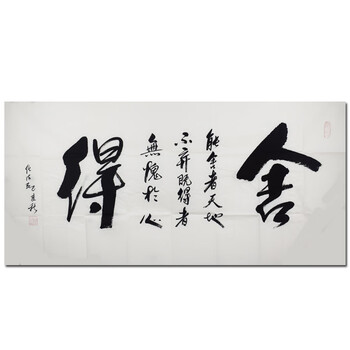 舍
能舍者天地
不弃既得者
無愧於心
得